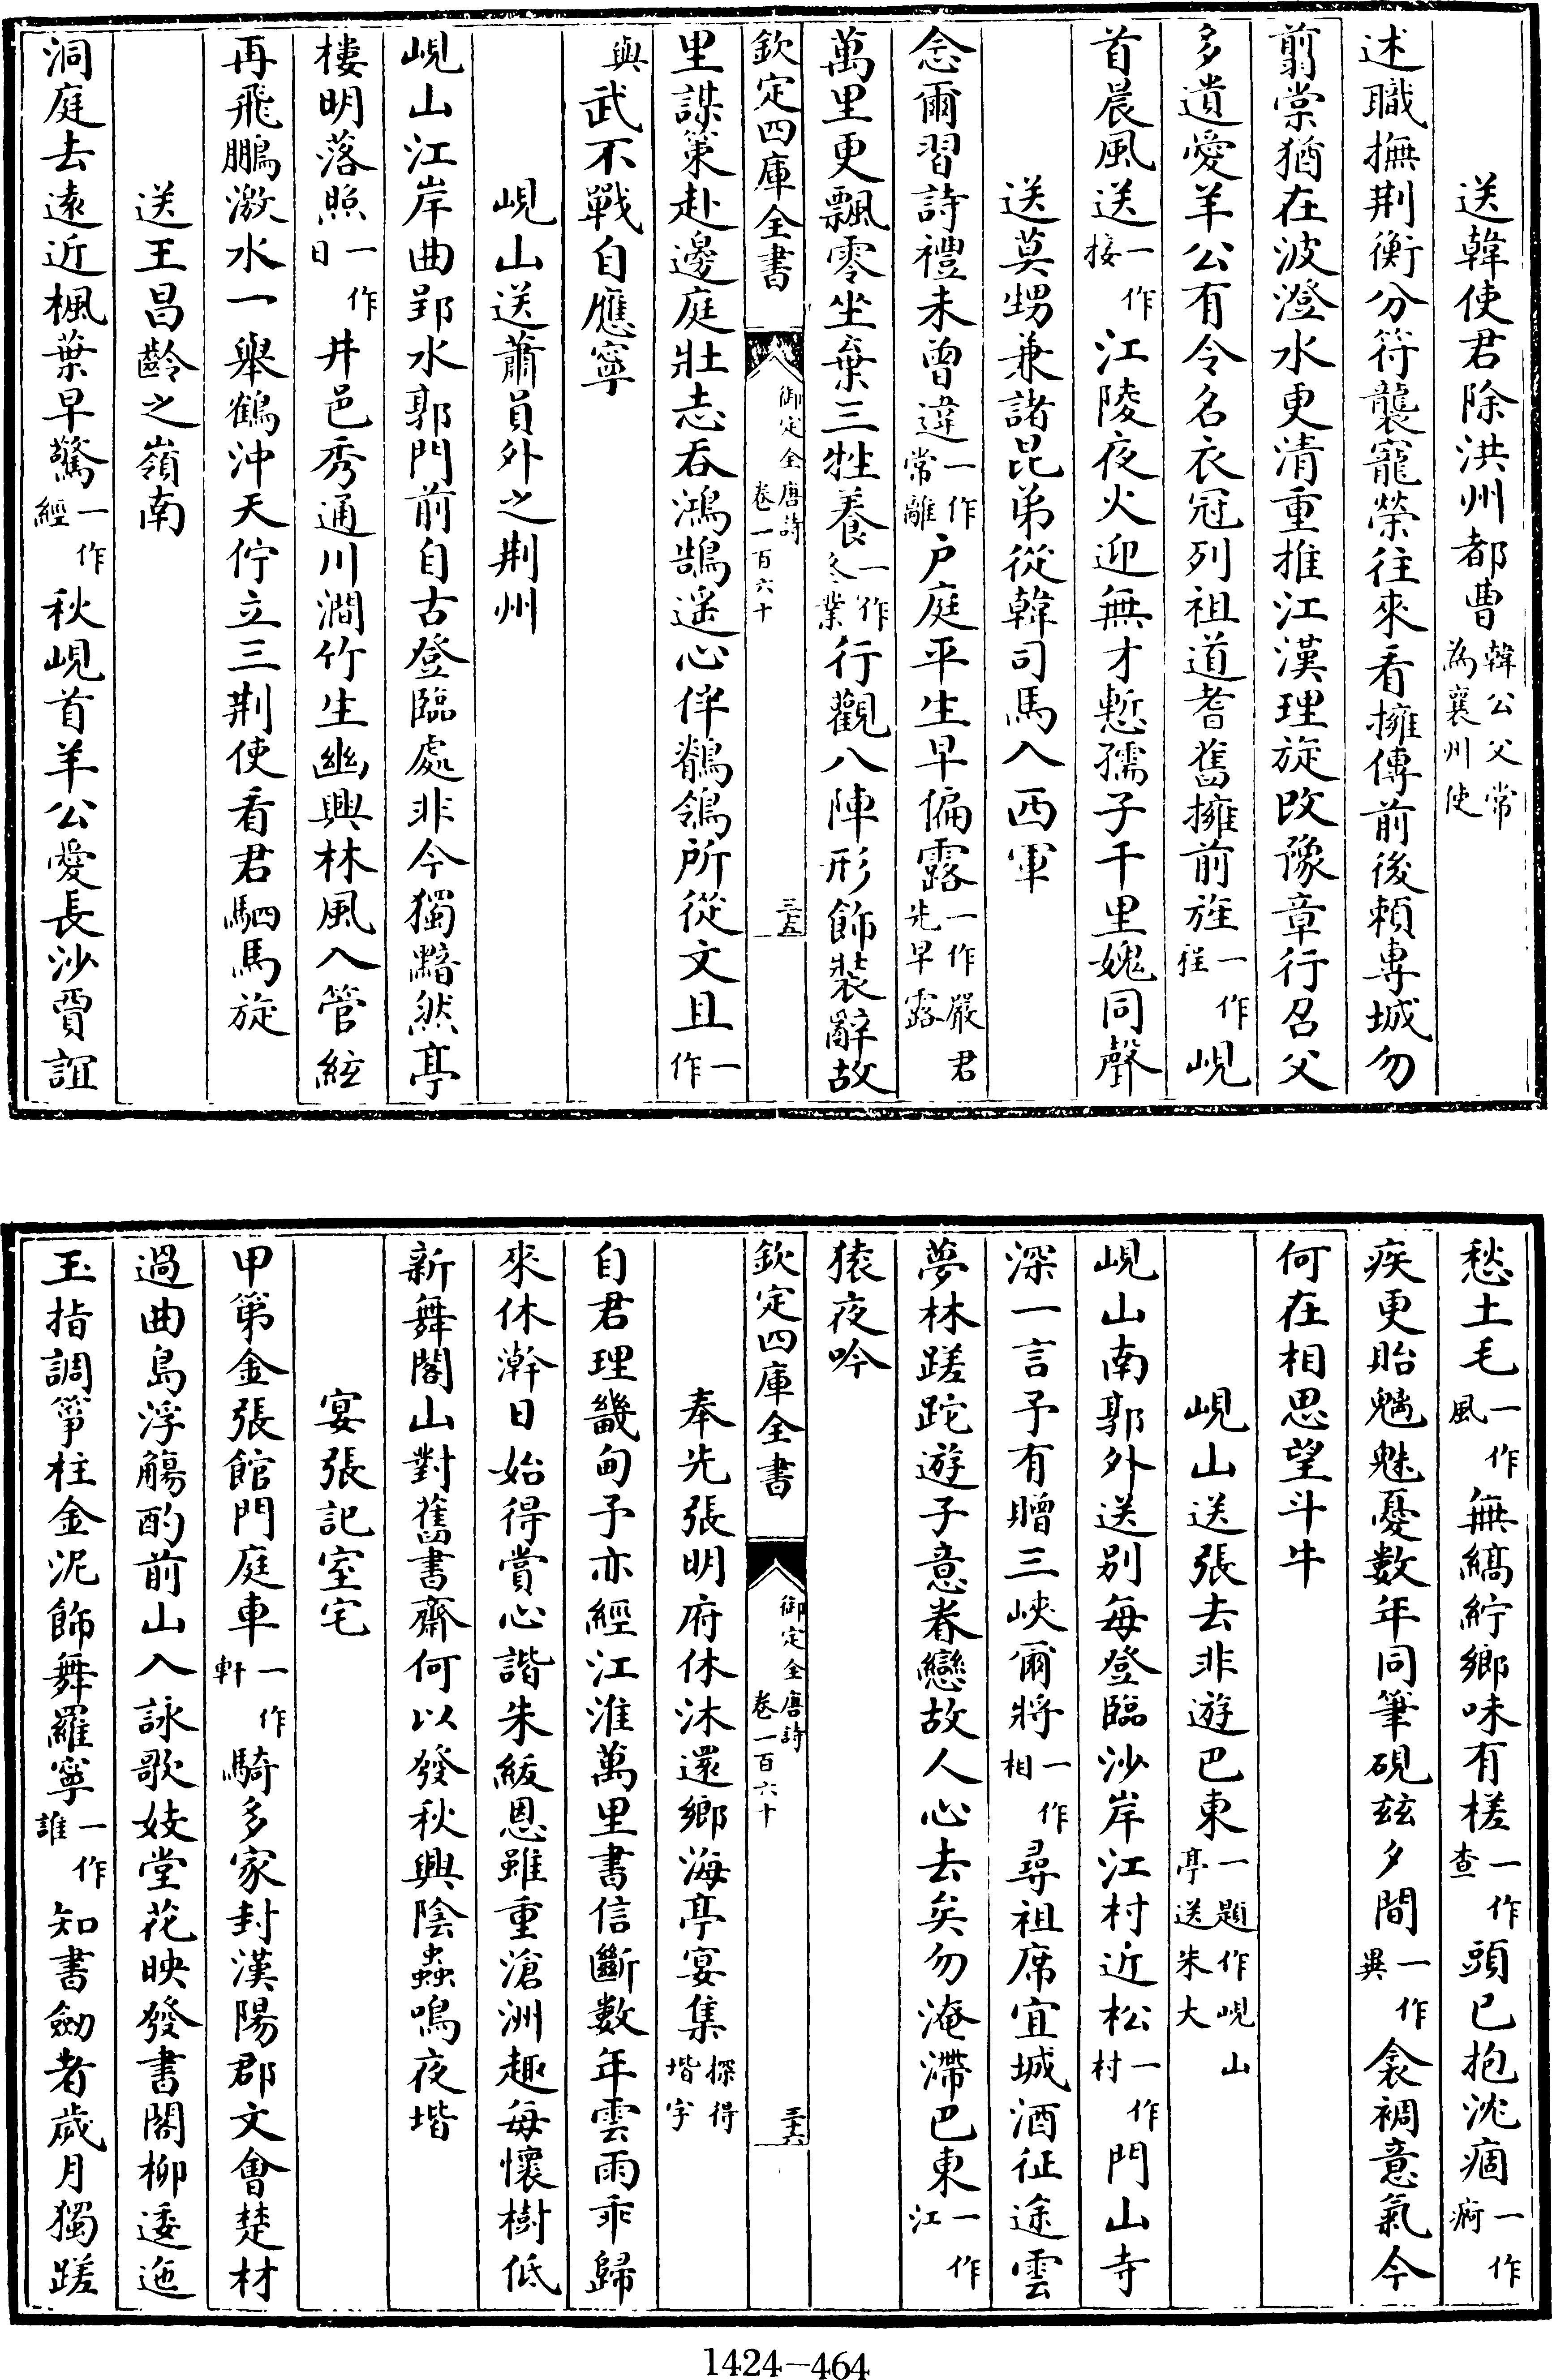 送韓使君除洪州都曹韓公父常為襄州使
述職撫荆衡分符襲寵榮往來看擁傳前後賴專城勿
翦棠猶在波澄水更清重推江漢理旋改豫章行召父
多遺愛羊公有令名衣冠列祖道耆舊擁前旌一作程峴
首晨風送一作接江陵夜火迎無才慙孺子千里媿同聲
送莫甥兼諸昆弟從韓司馬入西軍
念爾習詩禮未曾違一作常離户庭平生早偏露一作嚴君先早露
萬里更飄零坐棄三牲養一作冬業行觀八陣形飾裝辭故
欽定四庫全書 御定全唐詩卷一百六十 三五
里謀策赴邊庭壯志吞鴻鵠遥心伴鶺鴒所從文且一作
與武不戰自應寧
峴山送蕭員外之荆州
峴山江岸曲郢水郭門前自古登臨處非今獨黯然亭
樓明落照一作日井邑秀通川澗竹生幽興林風入管絃
再飛鵬激水一舉鶴沖天佇立三荆使看君駟馬旋
送王昌齡之嶺南
洞庭去遠近楓葉早驚一作經秋峴首羊公愛長沙賈誼
愁土毛一作風無縞紵鄉味有槎一作查頭已抱沈痼一作痾
疾更貽魑魅憂數年同筆硯兹夕間一作異衾裯意氣今
何在相思望斗牛
峴山送張去非遊巴東一題作峴山亭送朱大
峴山南郭外送别每登臨沙岸江村近松一作村門山寺
深一言予有贈三峽爾將一作相尋祖席宜城酒征途雲
夢林蹉跎遊子意眷戀故人心去矣勿淹滯巴東一作江
猿夜吟
欽定四庫全書 御定全唐詩卷一百六十 三六
奉先張明府休沐還鄉海亭宴集探得堦字
自君理畿甸予亦經江淮萬里書信斷數年雲雨乖歸
來休澣日始得賞心諧朱紱恩雖重滄洲趣每懷樹低
新舞閣山對舊書齋何以發秋興陰蟲鳴夜堦
宴張記室宅
甲第金張館門庭車一作軒騎多家封漢陽郡文會楚材
過曲島浮觴酌前山入詠歌妓堂花映發書閣柳逶迤
玉指調箏柱金泥飾舞羅寧一作誰知書劒者歲月獨蹉
1424-464